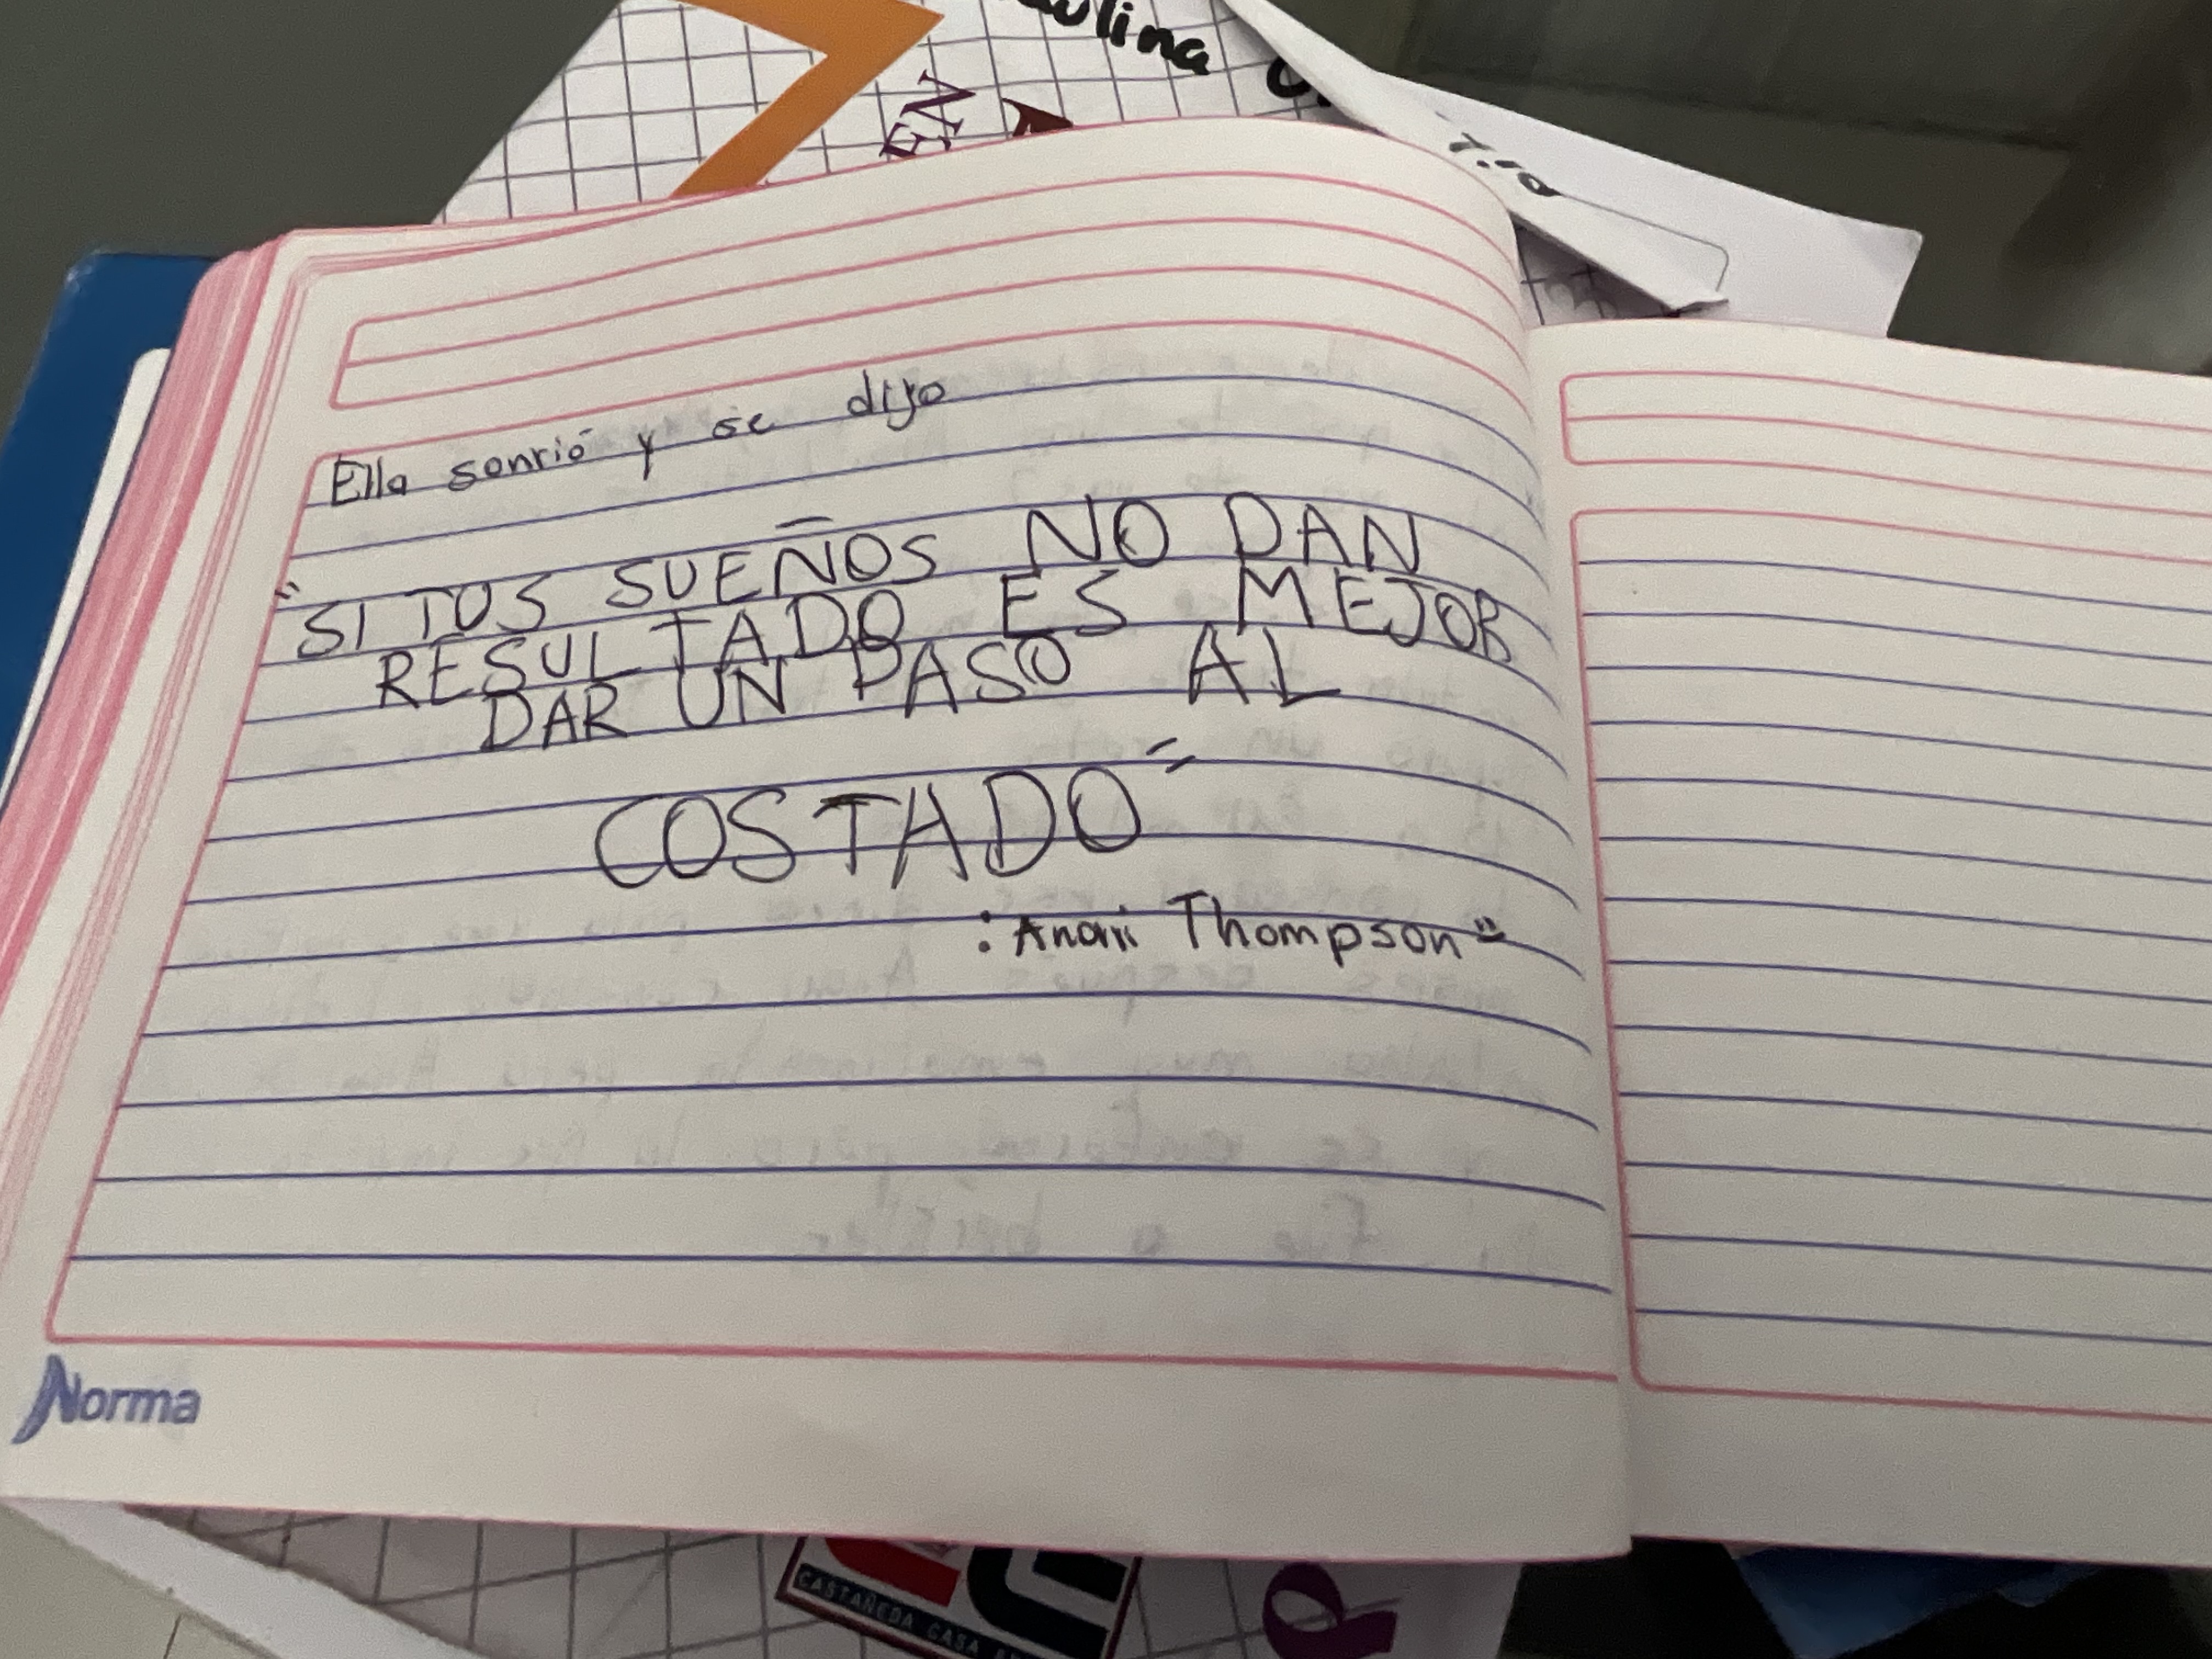 ulina
EN
Ella sonrió y se dijo
"SI TUS SUEÑOS NO DAN
RESULTADO ES MEJOR
DAR UN PASO AL
COSTADO"
: Anaii Thompson "
Norma
CASTAÑEDA CASA